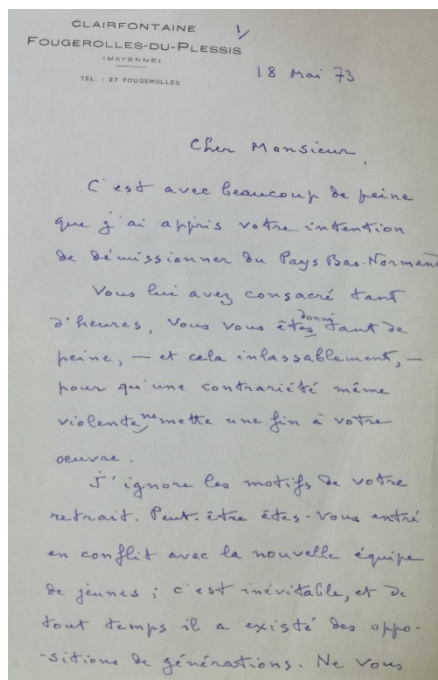 CLAIRFONTAINE
1/
FOUGEROLLES-DU-PLESSIS
(MAYENNE)
TÉL. : 27 FOUGEROLLES
18 Mai 73
Cher Monsieur,
C'est avec beaucoup de peine
que j'ai appris votre intention
de démissionner du Pays Bas-Normand
Vous lui avez consacré tant
d'heures, vous vous êtes donné tant de
peine, — et cela inlassablement, —
pour qu'une contrariété même
violente ne mette une fin à votre
oeuvre.
J'ignore les motifs de votre
retrait. Peut-être êtes-vous entré
en conflit avec la nouvelle équipe
de jeunes ; c'est inévitable, et de
tout temps il a existé des oppo-
-sitions de générations. Ne vous